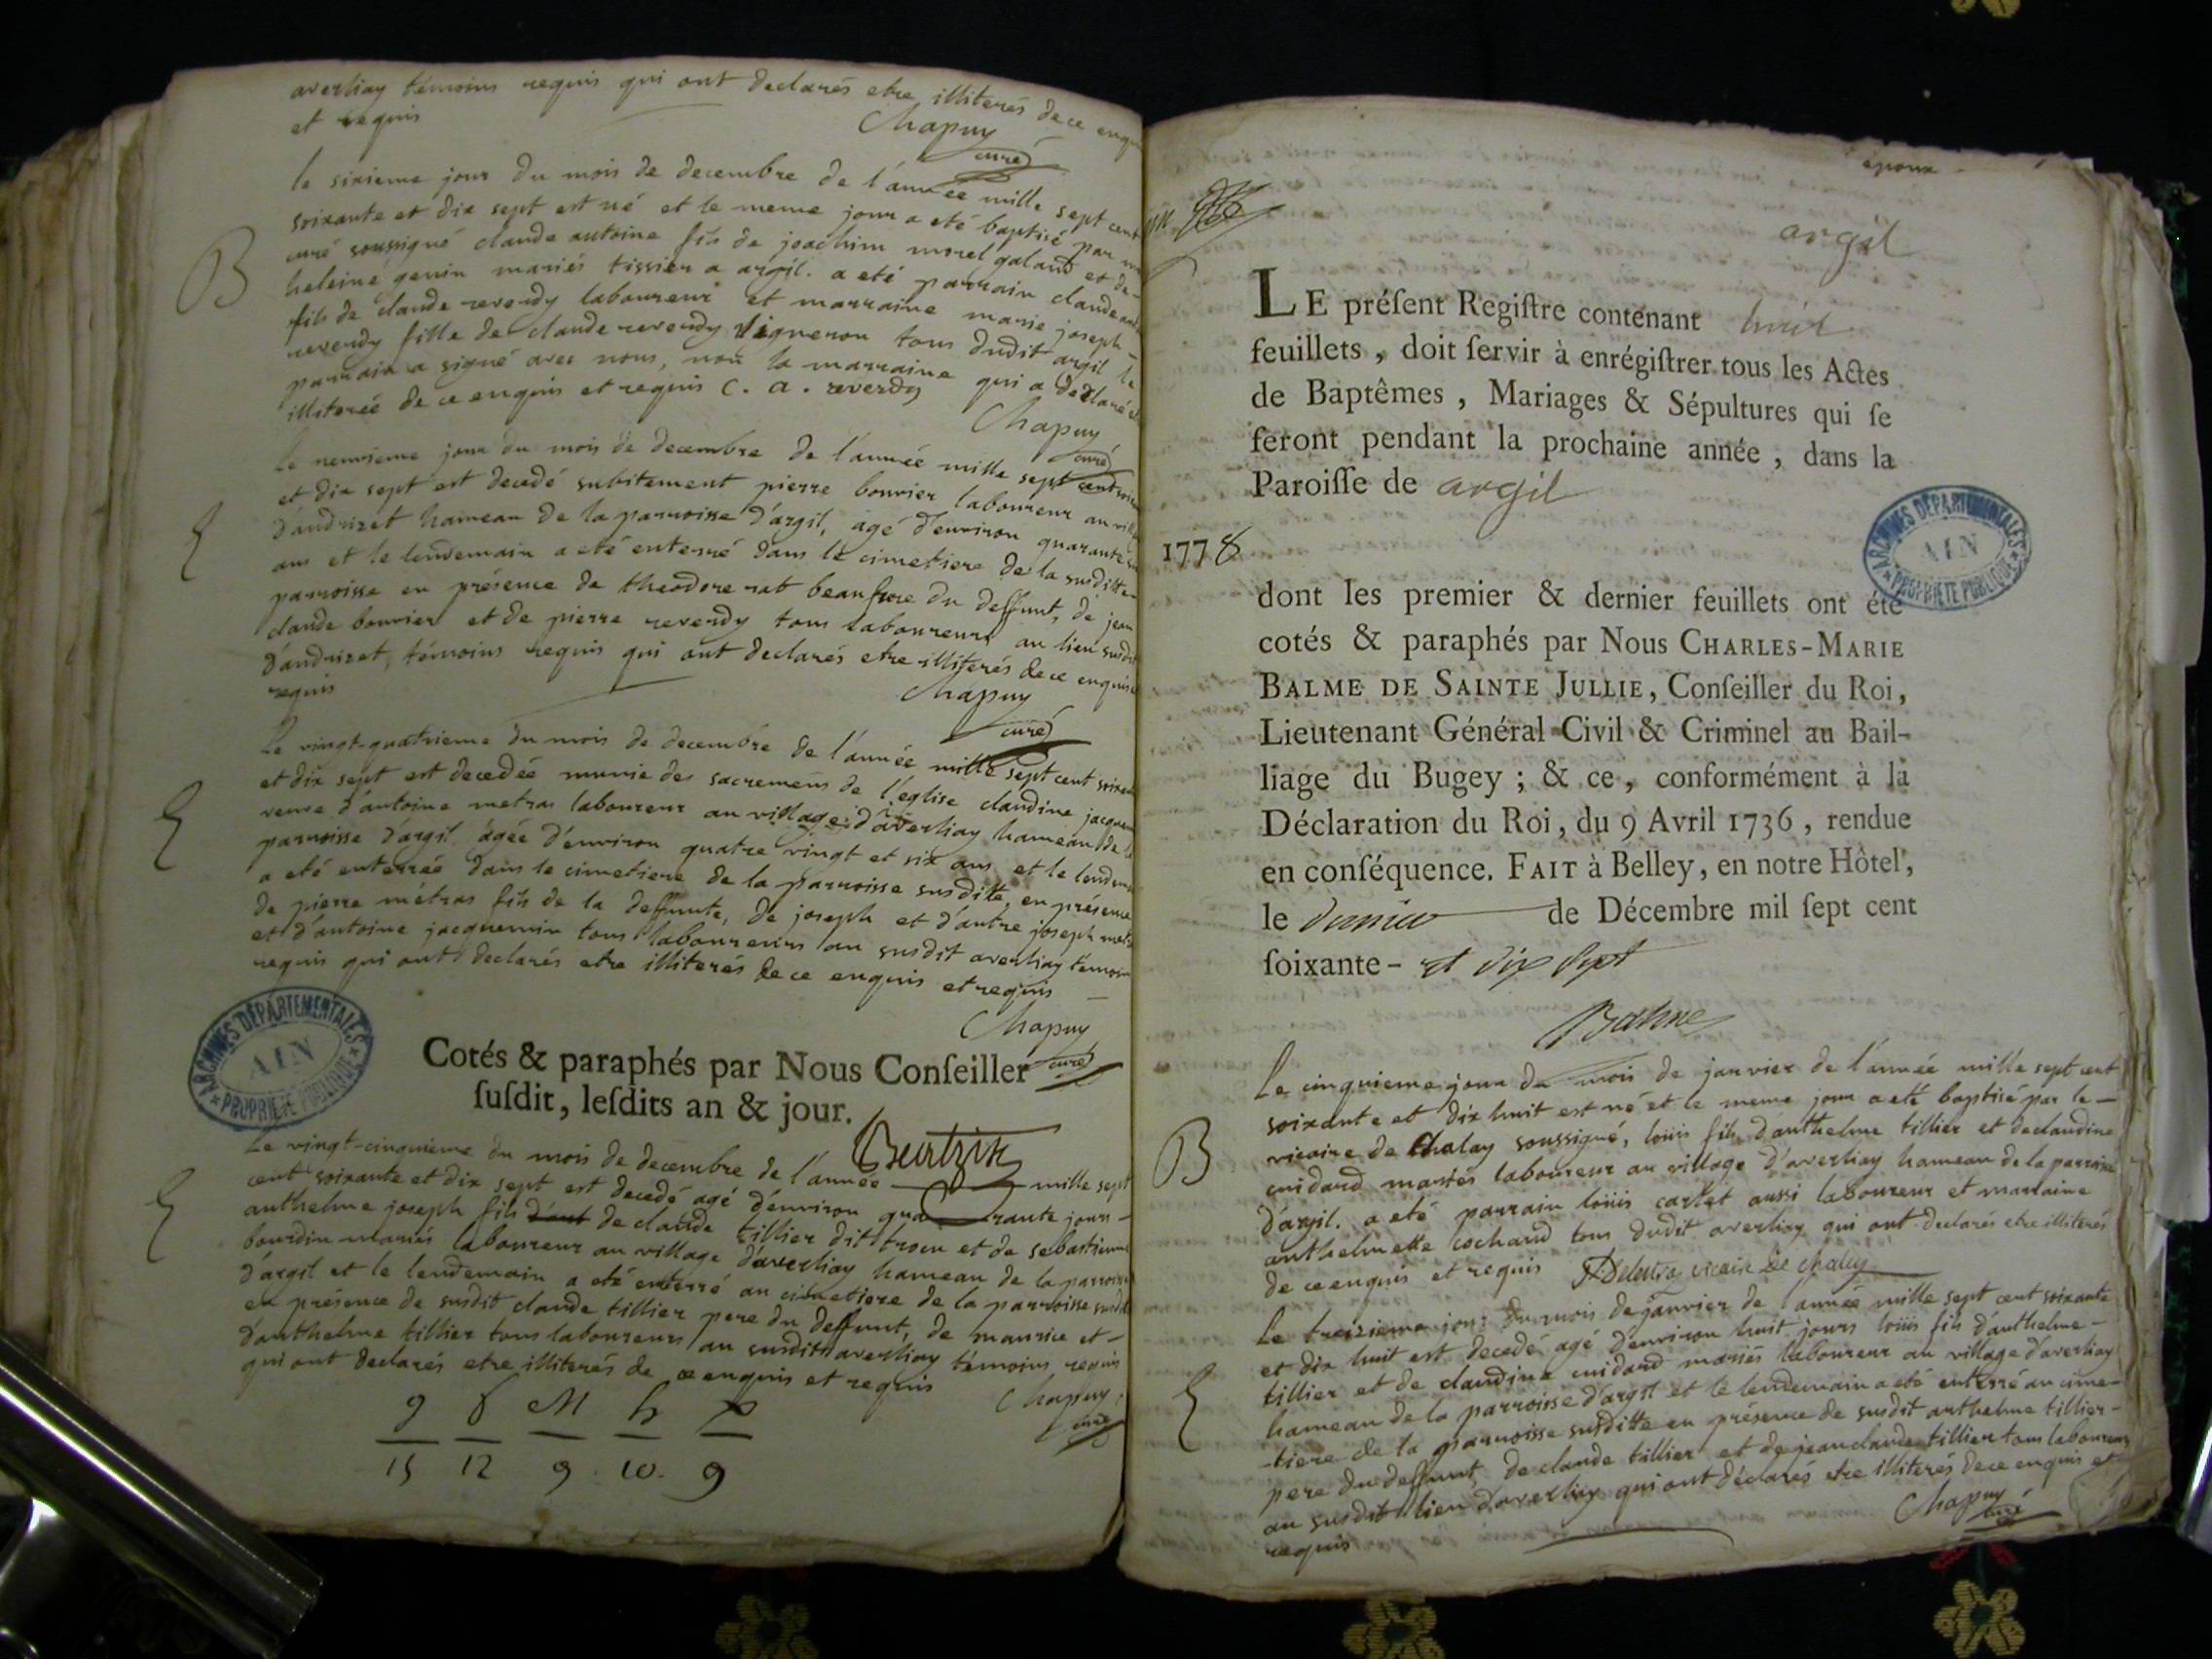 averliay témoins requis qui ont declarés etre illiterés de ce enquis
et requis
Chapuy
curé
le sixieme jour du mois de decembre de l'année mille sept cent
soixante et dix sept est né et le meme jour a eté baptisé par
curé soussigné claude antoine fils de joachim morel galand et de
heleine genin mariés tissier a argil. a eté parrain claude
fils de claude reverdy laboureur et marraine marie joseph
reverdy fille de claude reverdy vigneron tous dudit argil le
parrain a signé avec nous, non la marraine qui a declaré
illiterée de ce enquis et requis C. a. reverdy
Chapuy
curé
B
le neuvieme jour du mois de decembre de l'année mille sept cent
et dix sept est decedé subitement pierre bouvier laboureur au
d'andrizet hameau de la parroisse d'argil, agé d'environ quarante
ans et le lendemain a eté enterré dans le cimetiere de la susditte
parroisse en présence de theodore rat beaufrere du deffunt, de jean
claude bouvier et de pierre reverdy tous laboureurs au lieu susdit
d'andrizet, témoins requis qui ont declarés etre illiterés de ce enquis
requis
Chapuy
curé
Le vingt-quatrieme du mois de decembre de l'année mille sept cent
et dix sept est decedée munie des sacremens de l'eglise claudine
veuve d'antoine metras laboureur au village d'averliay hameau de la
parroisse d'argil agée d'environ quatre vingt et six ans et le
a eté enterrée dans le cimetiere de la parroisse susditte, en présence
de pierre métras fils de la deffunte, de joseph et d'autre joseph
et d'antoine jacquemin tous laboureurs au susdit averliay
requis qui ont declarés etre illiterés de ce enquis et requis
Chapuy
curé
ARCHIVES DÉPARTEMENTALES
AIN
PROPRIÉTÉ PUBLIQUE
Cotés & paraphés par Nous Conſeiller
ſuſdit, leſdits an & jour.
Le vingt-cinquieme du mois de decembre de l'année mille sept
cent soixante et dix sept est decedé agé d'environ quarante jours
anthelme joseph fils de claude tillier dit troen et de sebastienne
bourdin mariés laboureur au village d'averliay hameau de la parroisse
d'argil et le lendemain a eté enterré au cimetiere de la parroisse
en présence de susdit claude tillier pere du deffunt, de maurice et
d'anthelme tillier tous laboureurs au susdit averliay témoins requis
qui ont declarés etre illiterés de ce enquis et requis
Chapuy
curé
9 8 M h
15 12 9 10. 9
époux
argil
LE préſent Regiſtre contenant huit
feuillets, doit ſervir à enrégiſtrer tous les Actes
de Baptêmes, Mariages & Sépultures qui ſe
feront pendant la prochaine année, dans la
Paroiſſe de argil
1778
ARCHIVES DÉPARTEMENTALES
AIN
PROPRIÉTÉ PUBLIQUE
dont les premier & dernier feuillets ont été
cotés & paraphés par Nous CHARLES-MARIE
BALME DE SAINTE JULLIE, Conſeiller du Roi,
Lieutenant Général Civil & Criminel au Bail-
liage du Bugey; & ce, conformément à la
Déclaration du Roi, du 9 Avril 1736, rendue
en conſéquence. FAIT à Belley, en notre Hôtel,
le dernier de Décembre mil ſept cent
ſoixante- et dix sept
Balme
Le cinquieme jour du mois de janvier de l'année mille sept cent
soixante et dix huit est né et le meme jour a eté baptisé par le
vicaire de Chalay soussigné, loüis fils d'anthelme tillier et de claudine
cuidard mariés laboureur au village d'averliay hameau de la parroisse
d'argil. a eté parrain loüis carlet aussi laboureur et marraine
anthelmette cochard tous dudit averliay qui ont declarés etre illiterés
de ce enquis et requis vicaire de chaley
B
Le treizieme jour du mois de janvier de l'année mille sept cent soixante
et dix huit est decedé agé d'environ huit jours loüis fils d'anthelme
tillier et de claudine cuidard mariés laboureur au village d'averliay
hameau de la parroisse d'argil et le lendemain a eté enterré au cime-
-tiere de la parroisse susditte en présence de susdit anthelme tillier
pere du deffunt, de claude tillier et de jean claude tillier tous laboureurs
au susdit lieu d'averliay qui ont déclarés etre illiterés de ce enquis et
requis
Chapuy
curé